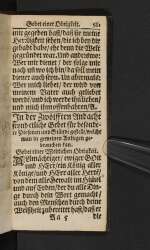 Gebet einer Obrigkeit. 561
mir gegeben hast/daß sie meine
Herrligkeit sehen/die ich bey dir
gehabt habe/ ehe denn die Welt
gegründet war. Und anderswo:
Wer mir dienet / der folge mir
nach/ und wo ich bin/da soll mein
diener auch seyn. Und abermals:
Wer mich liebet/ der wird von
meinem Vater auch geliebet
werde/und ich werde ihn lieben/
und mich ihm offenbahren/ A.
In der Zwölfften Andacht
sind etliche Gebet für besonde-
re Personen und Stände gestellt/welche
man in gemeinen Anligen ge-
brauchen kan.
Gebet einer Weltlichen Obrigkeit.
Allmächtiger/ ewiger Gott
und HErr/ein König aller
Könige/und HErr aller Herrn/
von dem alle Gewalt im Himel
und auf Erden/der du alle Din-
ge durch dein Wort gemacht/
auch den Menschen durch deine
Weißheit zubereitet hast/daß er
Aa 5 die